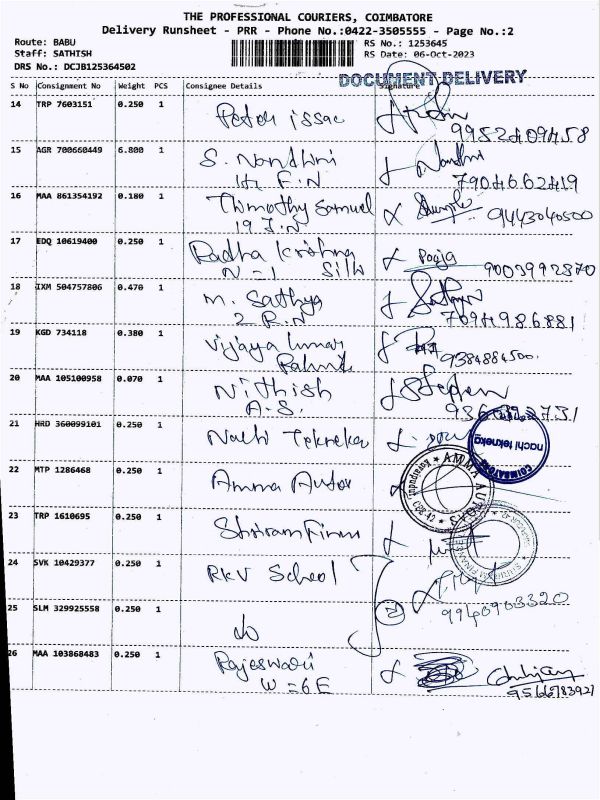 THE PROFESSIONAL COURIERS, COIMBATORE
Delivery Runsheet - PRR - Phone No.:0422-3505555 - Page No.:2
Route: BABU
Staff: SATHISH
DRS No.: DCJB125364502
RS No.: 1253645
RS Date: 06-Oct-2023
DOCUMENT DELIVERY
S No Consignment No Weight PCS Consignee Details Signature
14 TRP 7603151 0.250 1 Peter issac
9952409458
15 AGR 700660449 6.800 1 S. Nandhini Nandhni
F.N 7904662419
16 MAA 861354192 0.180 1 Thimothy Samuel
19 J.N 9443040500
17 EDQ 10619400 0.250 1 Radha Krishna Pooja
N=1 Silk 9003992870
18 IXM 504757806 0.470 1 M. Sathya
2 R.N 7094986881
19 KGD 734118 0.380 1 Vijaya kumar
9384884500
20 MAA 105100958 0.070 1 Nithish Stephen
A.S.
21 HRD 360099101 0.250 1 Nachi Tekneka
nachi teknekg
COIMBATORE
22 MTP 1286468 0.250 1 Amma Autos
AMMA AUTOS
23 TRP 1610695 0.250 1 Shriram Finan
SHRIRAM FINANCE
24 SVK 10429377 0.250 1 RKV School
9940903320
25 SLM 329925558 0.250 1 do
26 MAA 103868483 0.250 1 Rajeswari
W=6E 9566783927